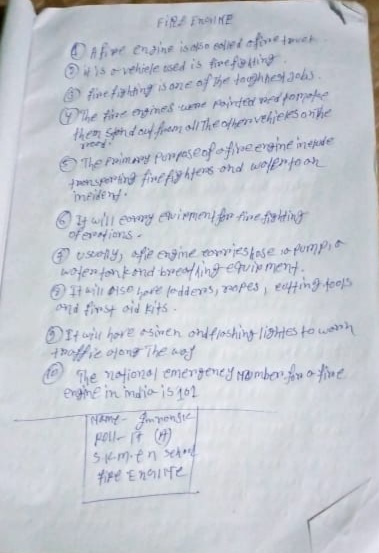 FIRE ENGINE
① A fire engine is also called a fire truck
② it is a vehicle used is fire fighting.
③ fire fighting is one of the toughnest Jobs.
④ The fire engines were painted red to make
them stand out from all The other vehicles on the
road.
⑤ The Primary Purpose of a fire engine include
transporting fire fighters and water to an
incident.
⑥ It will carry equipment for fire fighting
operations.
⑦ usually, a fire engine carries hose, a pump, a
water tank and breathing equipment.
⑧ It will also have ladders, ropes, cutting tools
and first aid kits.
⑨ It will have a siren and flashing lightes to warn
traffic along The way
⑩ The national emergency number for a fire
engine in india is 101
Name-
Roll- 17 (A)
S.K.M. E.N School
FIRE ENGINE